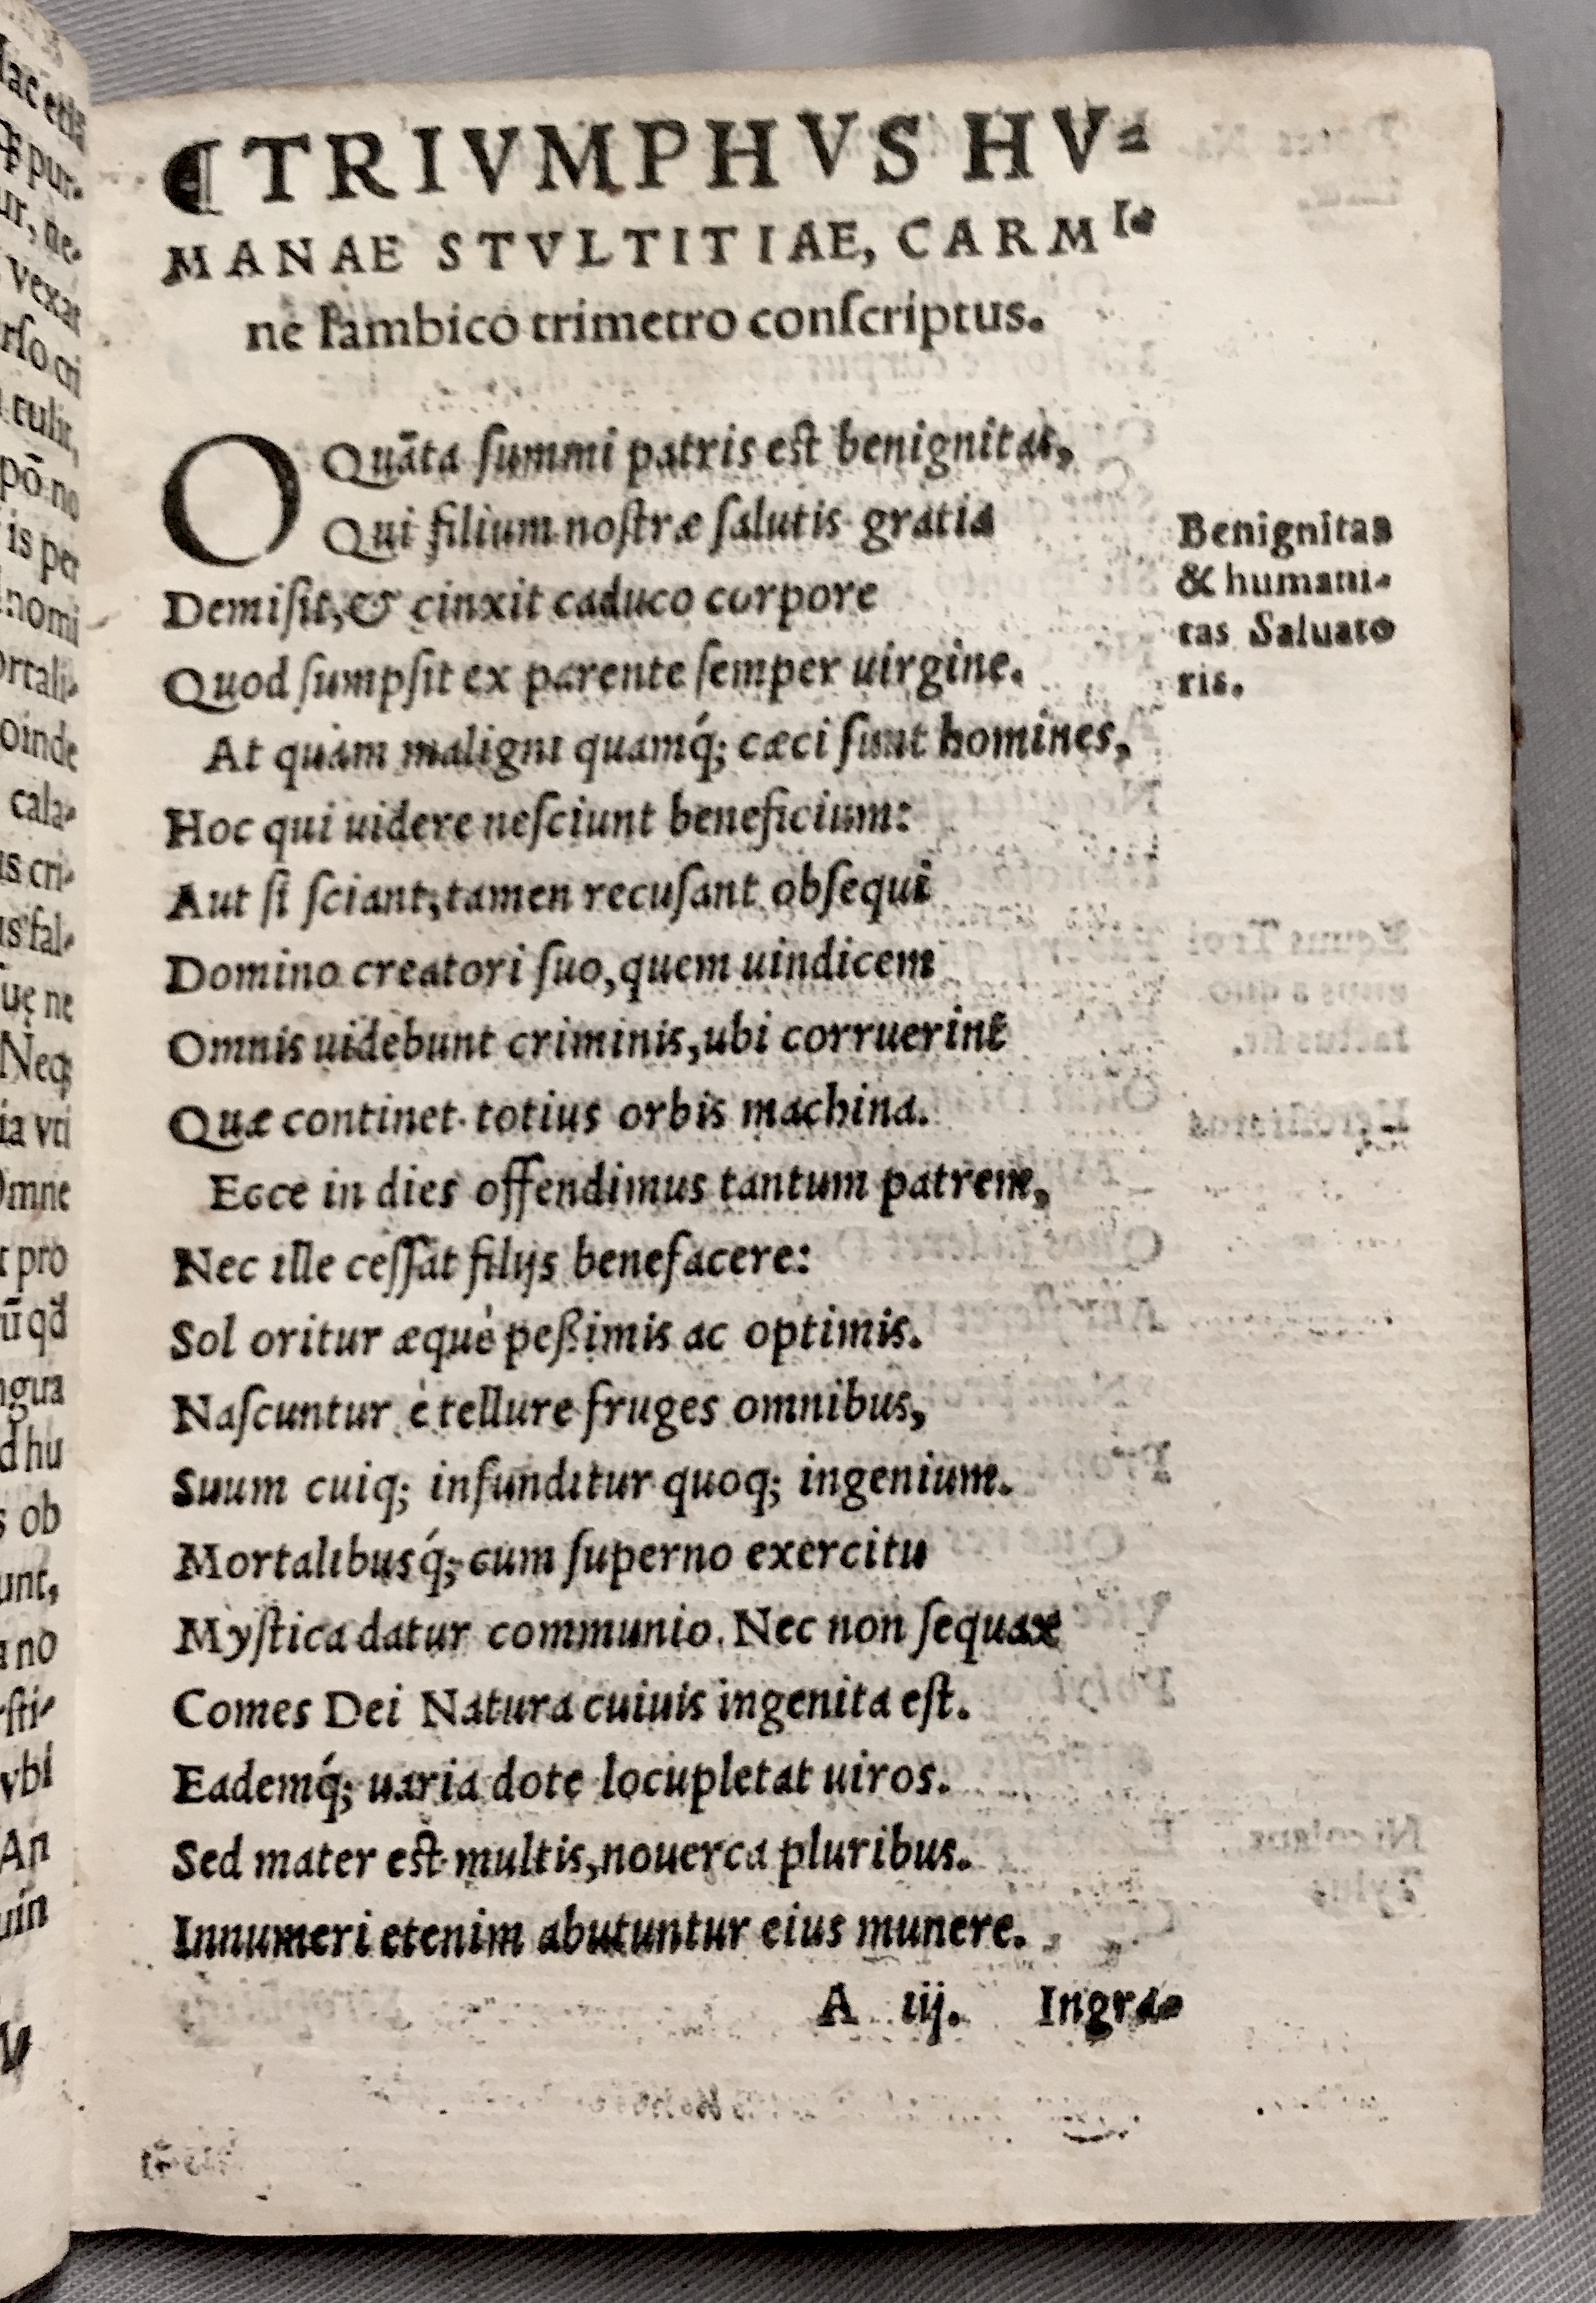 ¶ TRIVMPHVS HV=
MANAE STVLTITIAE, CARMI-
ne Iambico trimetro conſcriptus.
O Quāta ſummi patris eſt benignitas,
Qui filium noſtræ ſalutis gratia
Demiſit, & cinxit caduco corpore
Quod ſumpſit ex parente ſemper uirgine.
At quàm maligni quamq́; cæci ſunt homines,
Hoc qui uidere neſciunt beneficium:
Aut ſi ſciant, tamen recuſant obſequi
Domino creatori ſuo, quem uindicem
Omnis uidebunt criminis, ubi corruerint
Quæ continet totius orbis machina.
Ecce in dies offendimus tantum patrem,
Nec ille ceſſat filijs benefacere:
Sol oritur æquè peßimis ac optimis.
Naſcuntur è tellure fruges omnibus,
Suum cuiq; infunditur quoq; ingenium.
Mortalibusq́; cum ſuperno exercitu
Myſtica datur communio. Nec non ſequax
Comes Dei Natura cuiuis ingenita eſt.
Eademq́; uaria dote locupletat uiros.
Sed mater eſt multis, nouerca pluribus.
Innumeri etenim abutuntur eius munere.
A iij. Ingra-
Benignitas
& humani-
tas Saluato
ris.